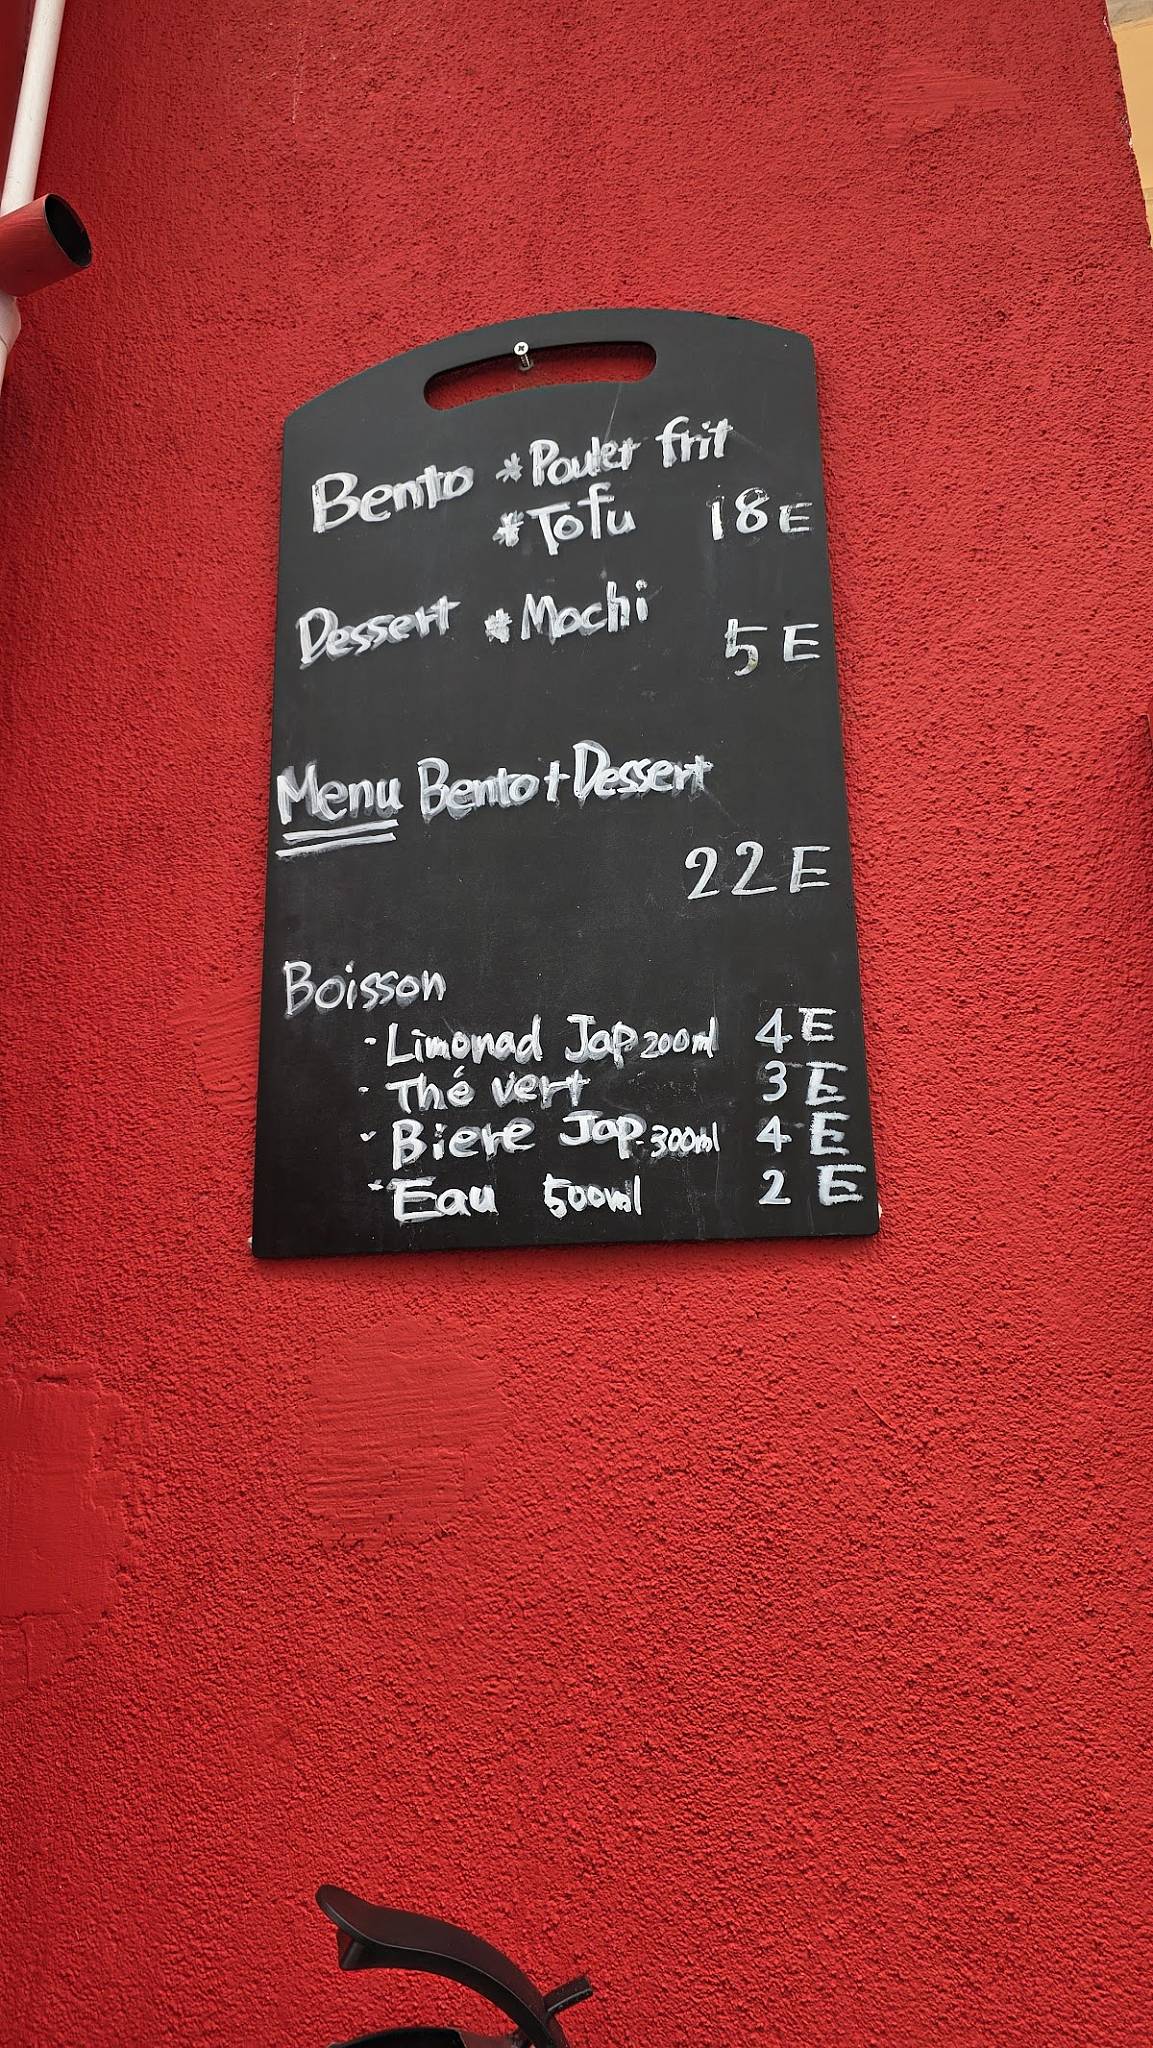 Bento *Poulet frit
*Tofu 18E
Dessert *Mochi
5E
Menu Bento+Dessert
22E
Boisson
-Limonad Jap 200ml 4E
-Thé vert 3E
-Biere Jap 300ml 4E
-Eau 500ml 2E